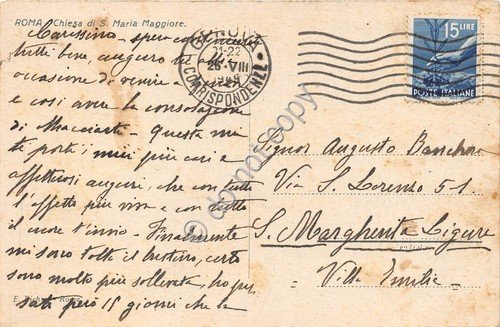 ROMA Chiesa di S. Maria Maggiore.
Carissimo - spero
tutti bene, auguro
occasione di venire a
e così avere la consolazione
di Questa mia
ti porti i miei più cari e
affettuosi auguri, che con tutto
l'affetto più vivo e con tutto
il cuore t'invio. - Finalmente
mi sono tolto il bustino, certo
sono molto più sollevata, ho
però 15 giorni che la
GENOVA
21-22
VIII
CORRISPONDENZE
15 LIRE
POSTE ITALIANE
Signor Augusto
Via S. Lorenzo 51
S. Margherita Ligure
Villa Emilia
E. Roma